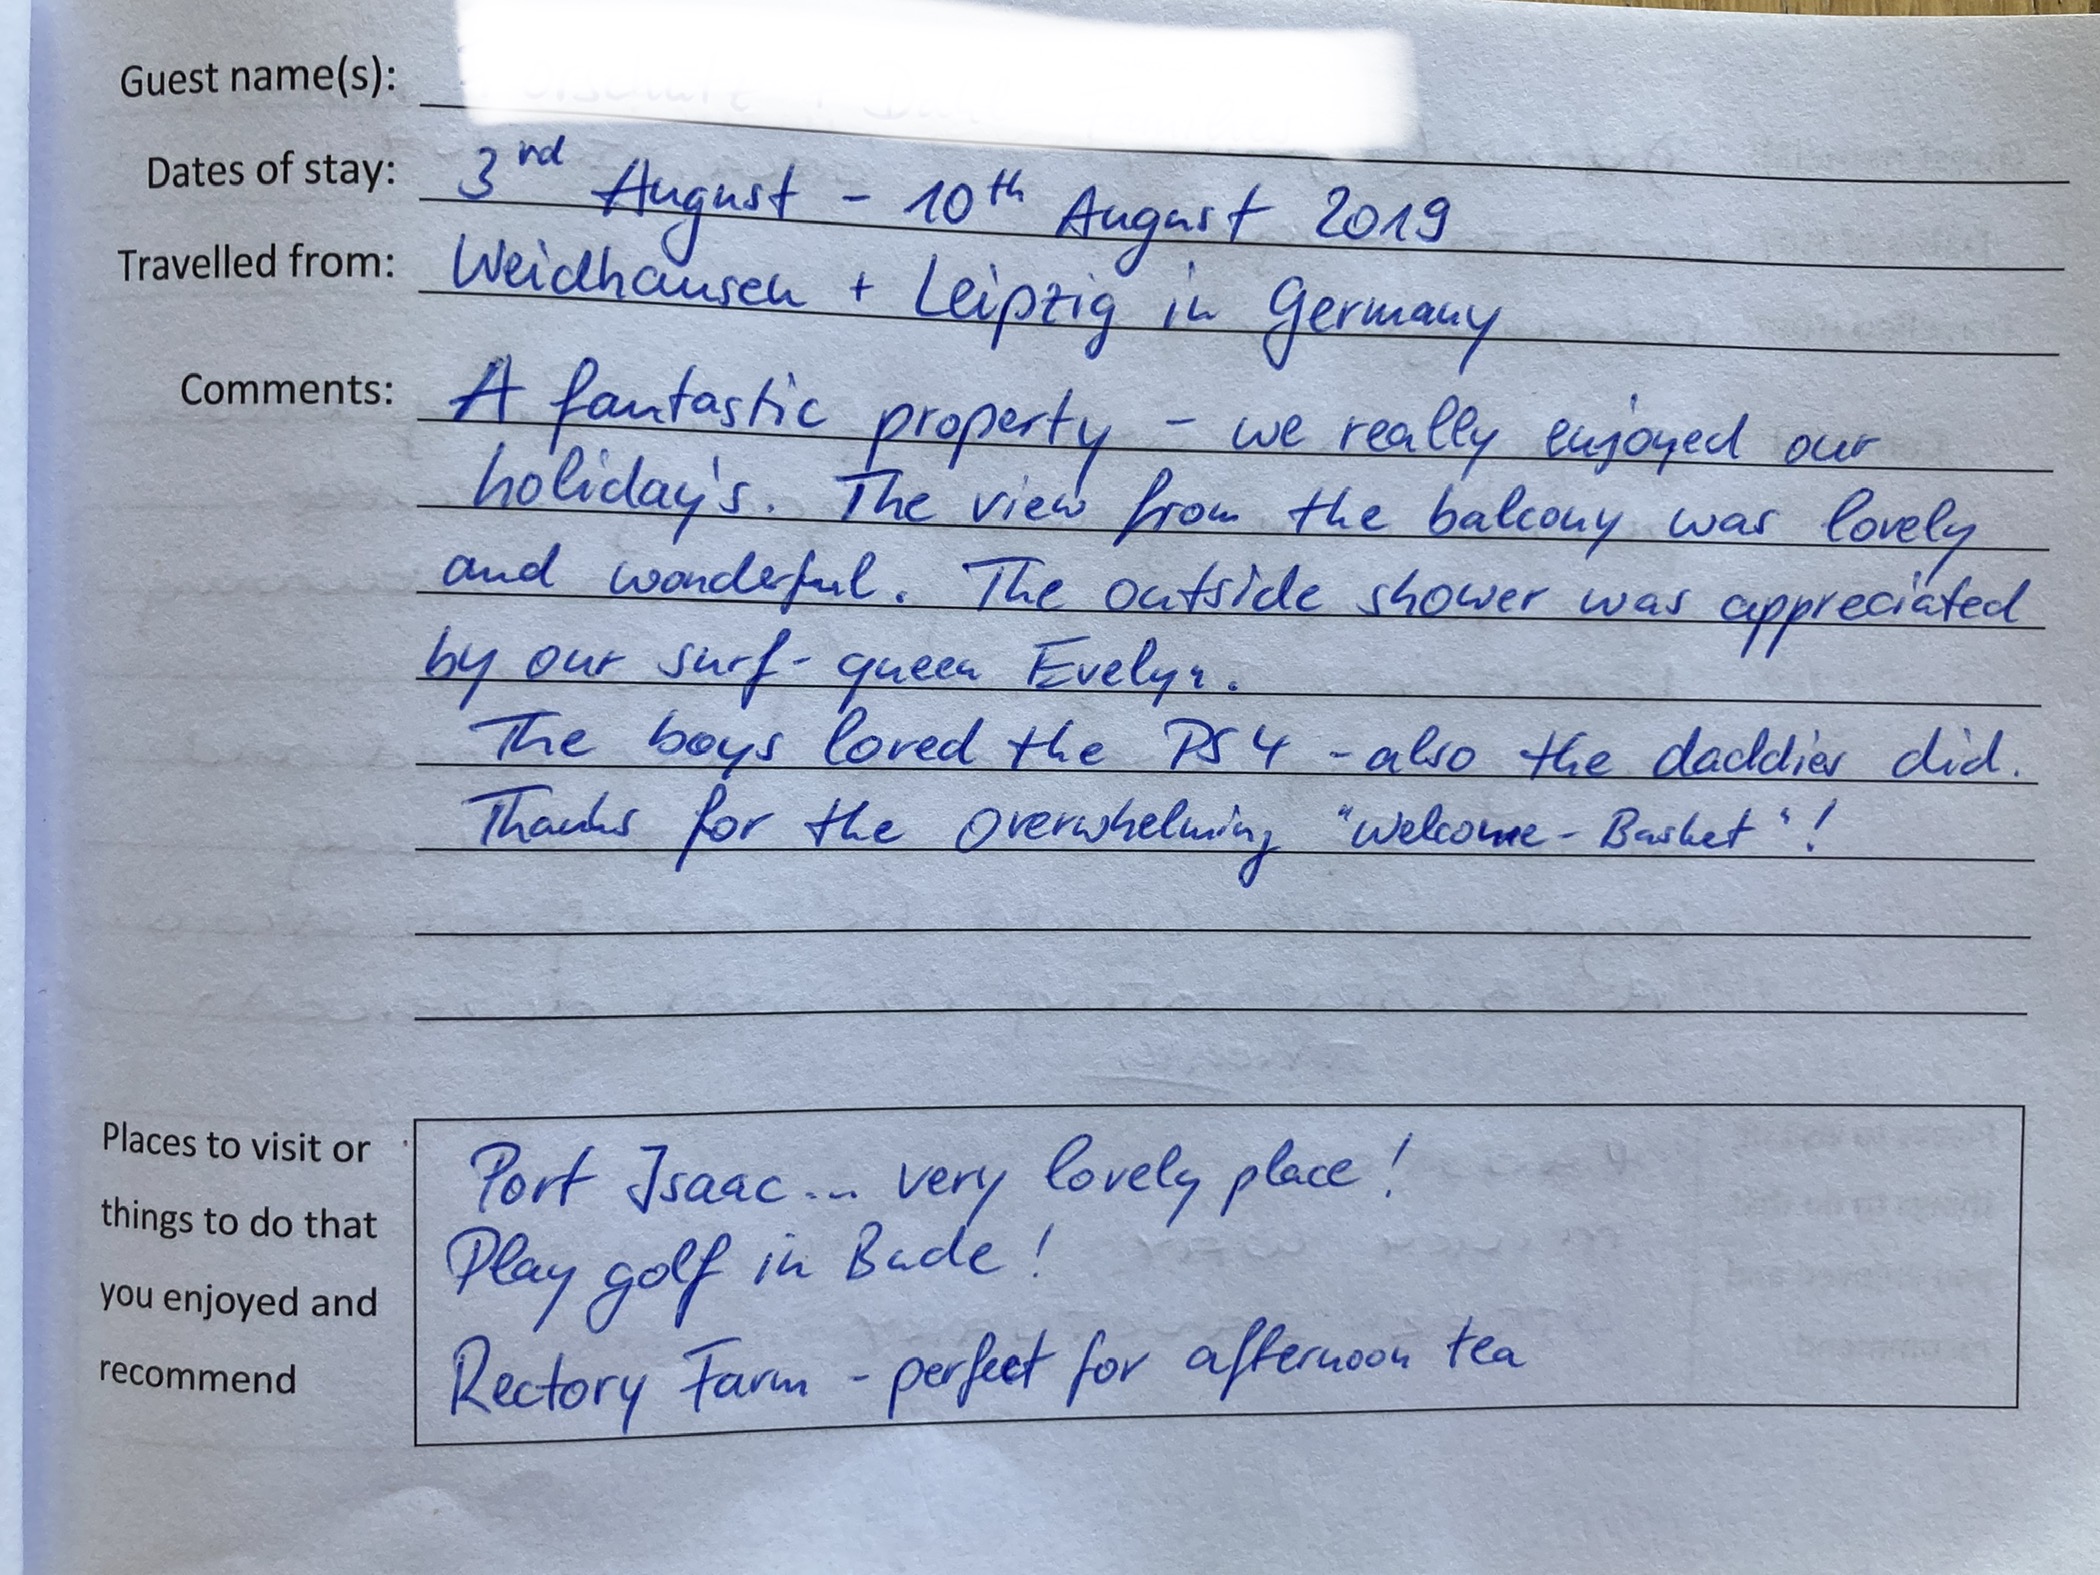 Guest name(s):
Dates of stay: 3rd August - 10th August 2019
Travelled from: Weidhausen + Leipzig in Germany
Comments: A fantastic property - we really enjoyed our
holiday's. The view from the balcony was lovely
and wonderful. The outside shower was appreciated
by our surf-queen Evelyn.
The boys loved the PS4 - also the daddies did.
Thanks for the overwhelming "Welcome-Basket"!
Places to visit or
things to do that
you enjoyed and
recommend
Port Isaac... very lovely place!
Play golf in Bude!
Rectory Farm - perfect for afternoon tea